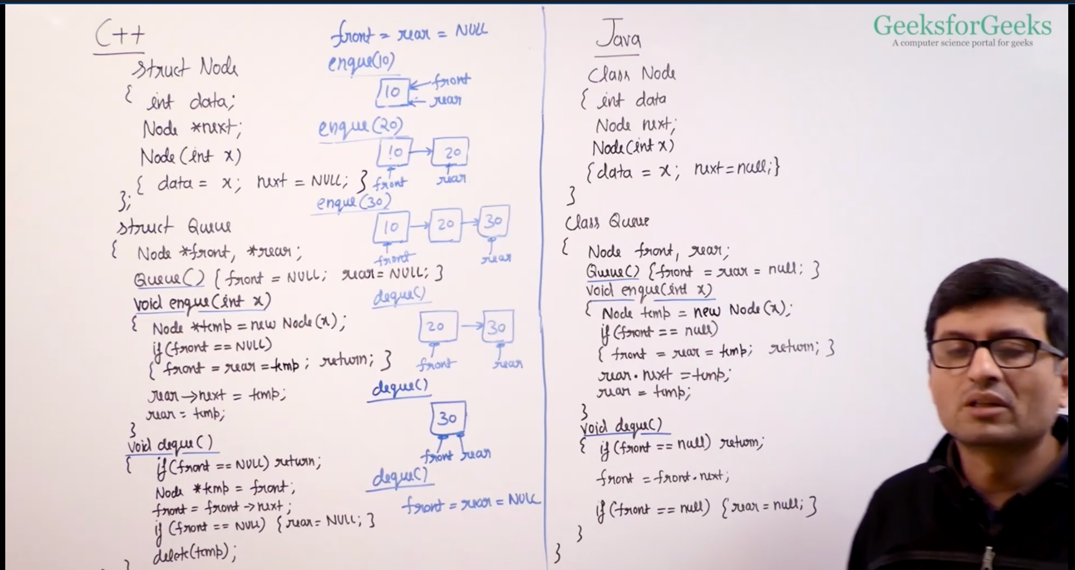 C++
Struct Node
{ int data;
Node *next;
Node(int x)
{ data = x; next = NULL; }
};
Struct Queue
{ Node *front, *rear;
Queue() {front = NULL; rear = NULL; }
void enque(int x)
{ Node *tmp = new Node(x);
if(front == NULL)
{ front = rear = tmp; return; }
rear→next = tmp;
rear = tmp;
}
void deque()
{ if(front == NULL) return;
Node *tmp = front;
front = front→next;
if(front == NULL) {rear = NULL; }
delete(tmp);
}
}
front = rear = NULL
enque(10)
10
front
rear
enque(20)
10 → 20
front rear
enque(30)
10 → 20 → 30
front rear
deque()
20 → 30
front rear
deque()
30
front rear
deque()
front = rear = NULL
Java
Class Node
{ int data
Node next;
Node(int x)
{data = x; next=null;}
}
Class Queue
{ Node front, rear;
Queue() {front = rear = null; }
void enque(int x)
{ Node tmp = new Node(x);
if(front == null)
{ front = rear = tmp; return; }
rear.next = tmp;
rear = tmp;
}
void deque()
{ if(front == null) return;
front = front.next;
if(front == null) {rear = null; }
}
}
GeeksforGeeks
A computer science portal for geeks